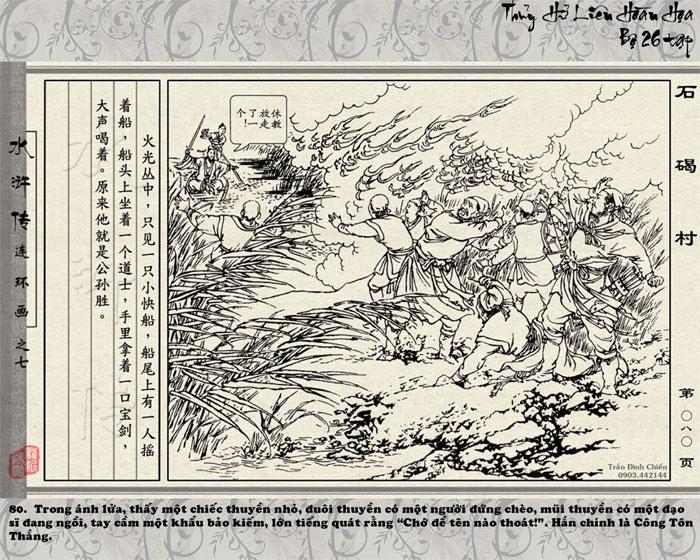 Thủy Hử Liên Hoàn Họa
Bộ 26 tập
石碣村
第〇八〇页
水浒传连环画之七
休教
放走
了一
个!
火光丛中,只见一只小快船,船尾上有一人摇
着船,船头上坐着一个道士,手里拿着一口宝剑,
大声喝着。原来他就是公孙胜。
Trần Đình Chiến
0903.442144
80. Trong ánh lửa, thấy một chiếc thuyền nhỏ, đuôi thuyền có một người đứng chèo, mũi thuyền có một đạo
sĩ đang ngồi, tay cầm một khẩu bảo kiếm, lớn tiếng quát rằng “Chớ để tên nào thoát!”. Hắn chính là Công Tôn
Thắng.